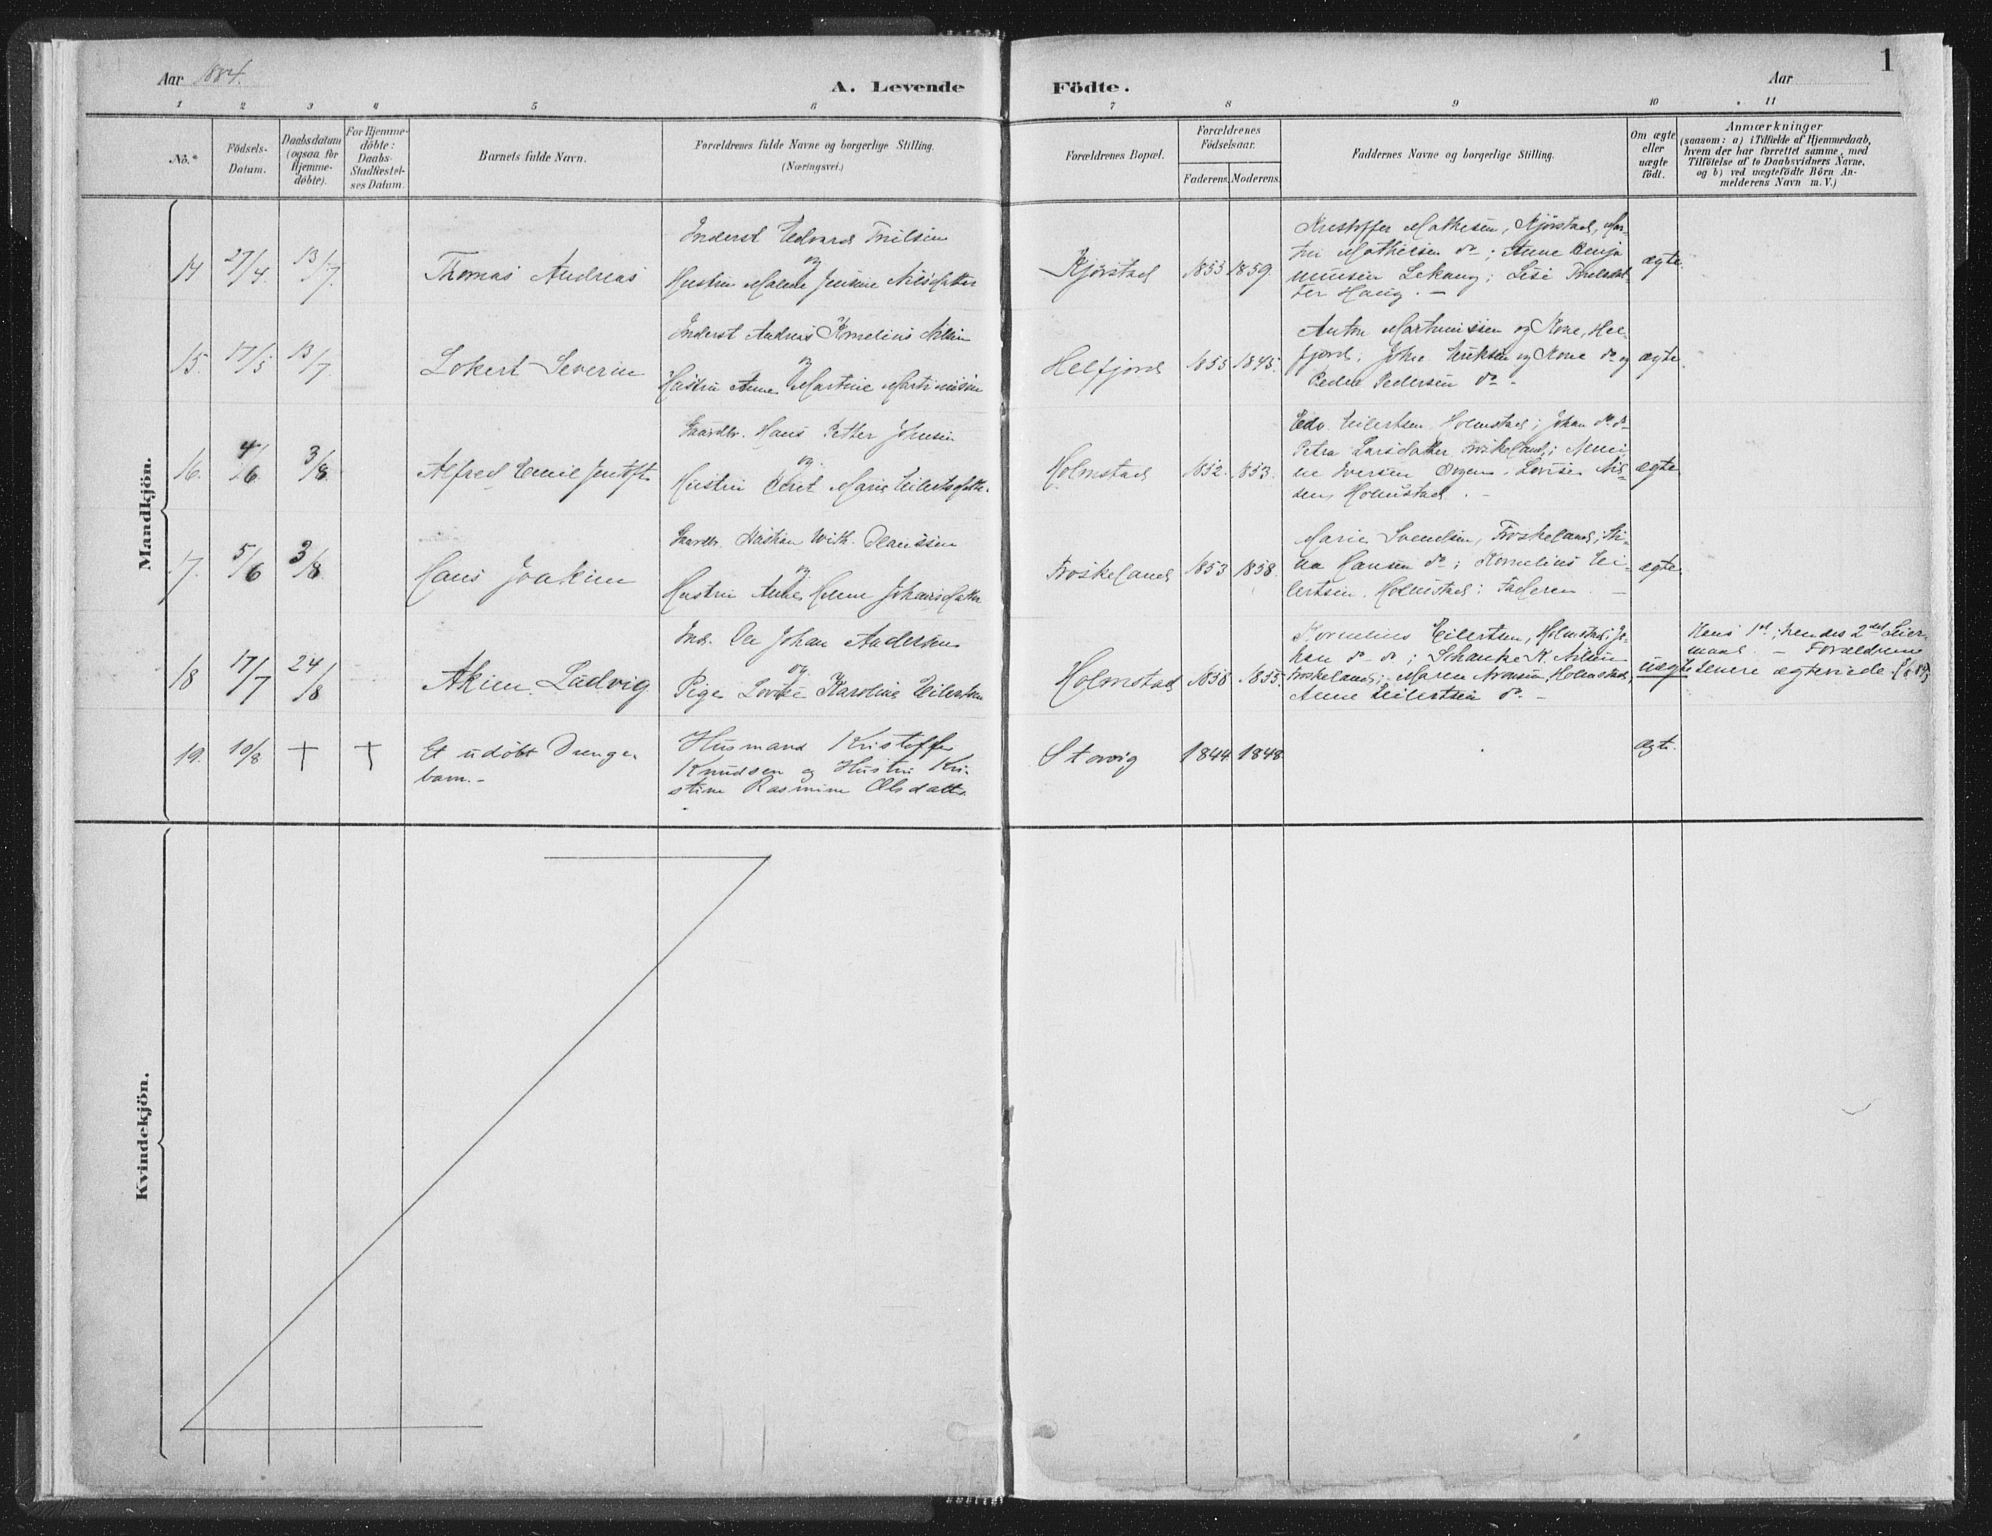 Aar 1884.
A. Levende
Födte.
Aar
1
1 2 3 4 5 6 7 8 9 10 11
No.*
Födsels-
Datum.
Daabsdatum
(ogsaa for
Hjemme-
döbte).
For Hjemme-
döbte:
Daabs-
Stadfæstel-
ses Datum.
Barnets fulde Navn.
Forældrenes fulde Navne og borgerlige Stilling.
(Næringsvei.)
Forældrenes Bopæl.
Forældrenes
Födselsaar.
Faderens. Moderens.
Faddernes Navne og borgerlige Stilling.
Om ægte
eller
uægte
födt.
Anmærkninger
(saasom: a) i Tilfælde af Hjemmedaab,
hvem der har forrettet samme, med
Tilföielse af to Daabsvidners Navne,
og b) ved uægtefödte Börn An-
melderens Navn m. V.)
Mandkjön.
14 27/4. 13/7. Thomas Andreas
Inderst Edvard
og
Hustru Malene Jensine Nilsdatter
Kjörstad 1853 1859.
Kristoffer Mathesen, Kjörstad, Mar-
Mathesen do; Anne Benja
minsen Lekang; Lise
Haug. -
ægte.
15. 17/5 13/7 Lokert Severin
Inderst Andreas Kornelius Nilsen
og
Hustru Anne Martine Martinusen
Helfjord 1855 1845.
Anton Martinussen og Kone, Hel-
fjord; John Eriksen og Kone do og
Peder Pedersen do -
ægte.
16. 4/6 3/8 Alfred Emil Jentoft
Gaardbr. Hans Petter Johnsen
og
Hustru Beret Marie Eilertsdatter.
Holmstad 1852. 1853.
Edv. Eilertsen Holmstad; Johan do do
Petra Larsdatter Froskeland;
ne Iversen Lovise Nil-
sen, Holmstad. -
ægte
17. 5/6 3/8 Hans Joakim
Gaardbr. Kristian With Olaussen
og
Hustru Anne Helene Johansdatter
Froskeland 1853 1858.
Marie Svendsen, Froskeland;
Hansen do; Kornelius Ei-
lertsen, Holmstad; Faderen. -
ægte
18 17/7 24/8 Akim Ludvig
Ind. Ole Johan Andersen
og
Pige Lovise Karoline Eilertsen
Holmstad 1858 1855.
Kornelius Eilertsen, Holmstad; Jo-
han do do; Schanke K. Nilsen
Froskeland; Maren Aronsen Holmstad,
Anne Eilertsen do -
uægte
Hans 1st; hendes 2det Leier-
maal. - Forældrene
senere ægteviede
19. 10/8 + + Et udöbt Drenge-
barn. -
Husmand Kristoffer
Knudsen og Hustru Kri-
stine Rasmine Olsdatter.
Storvig 1844. 1848.
ægte.
Kvindekjön.